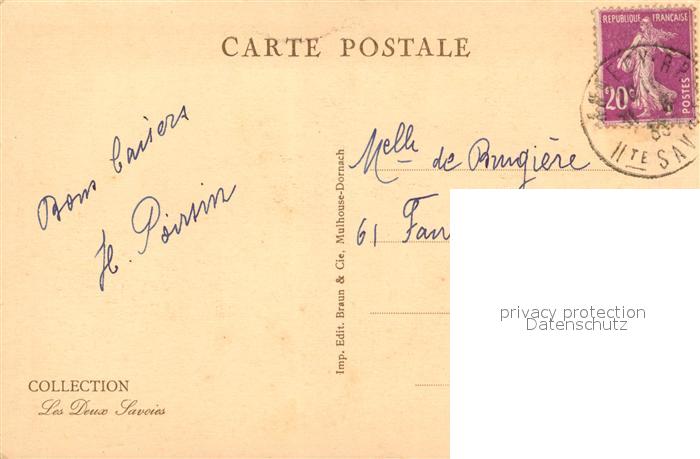 CARTE POSTALE
REPUBLIQUE FRANÇAISE
20c
POSTES
Hte SAV
Bons baisers
H. Poirsin
Melle de Brugière
61
Imp. Edit. Braun & Cie, Mulhouse-Dornach
COLLECTION
Les Deux Savoies
privacy protection
Datenschutz